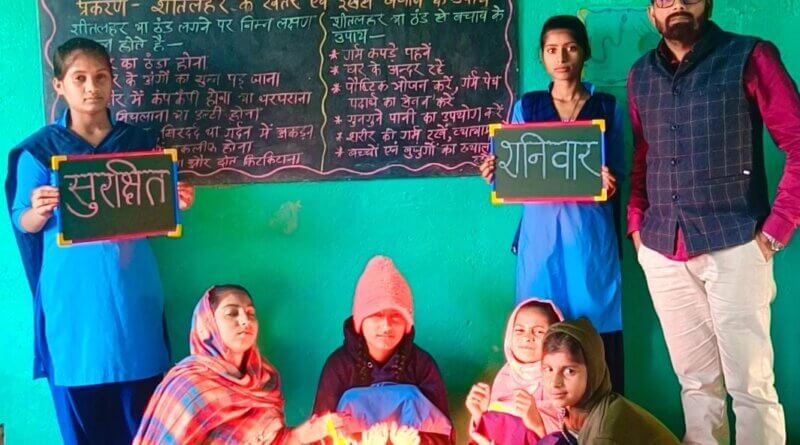 प्रकरण - शीतलहर के खतरे एवं इससे बचाव के उपाय
शीतलहर या ठंड लगने पर निम्न लक्षण
होते है:-
का ठंडा होना
के अंगों का सुन्न पड़ जाना
में कंपकंपी होना या थरथराना
मिचलाना या उल्टी होना
सिरदर्द या गर्दन में अकड़न
होना
और दांत किटकिटाना
शीतलहर या ठंड से बचाव के
उपाय-
* गर्म कपड़े पहनें
* घर के अन्दर रहें
* पौष्टिक भोजन करें, गर्म पेय
पदार्थ का सेवन करें
* गुनगुने पानी का उपयोग करें
* शरीर को गर्म रखें, व्यायाम
* बच्चों एवं बुजुर्गों का ख्याल
सुरक्षित
शनिवार